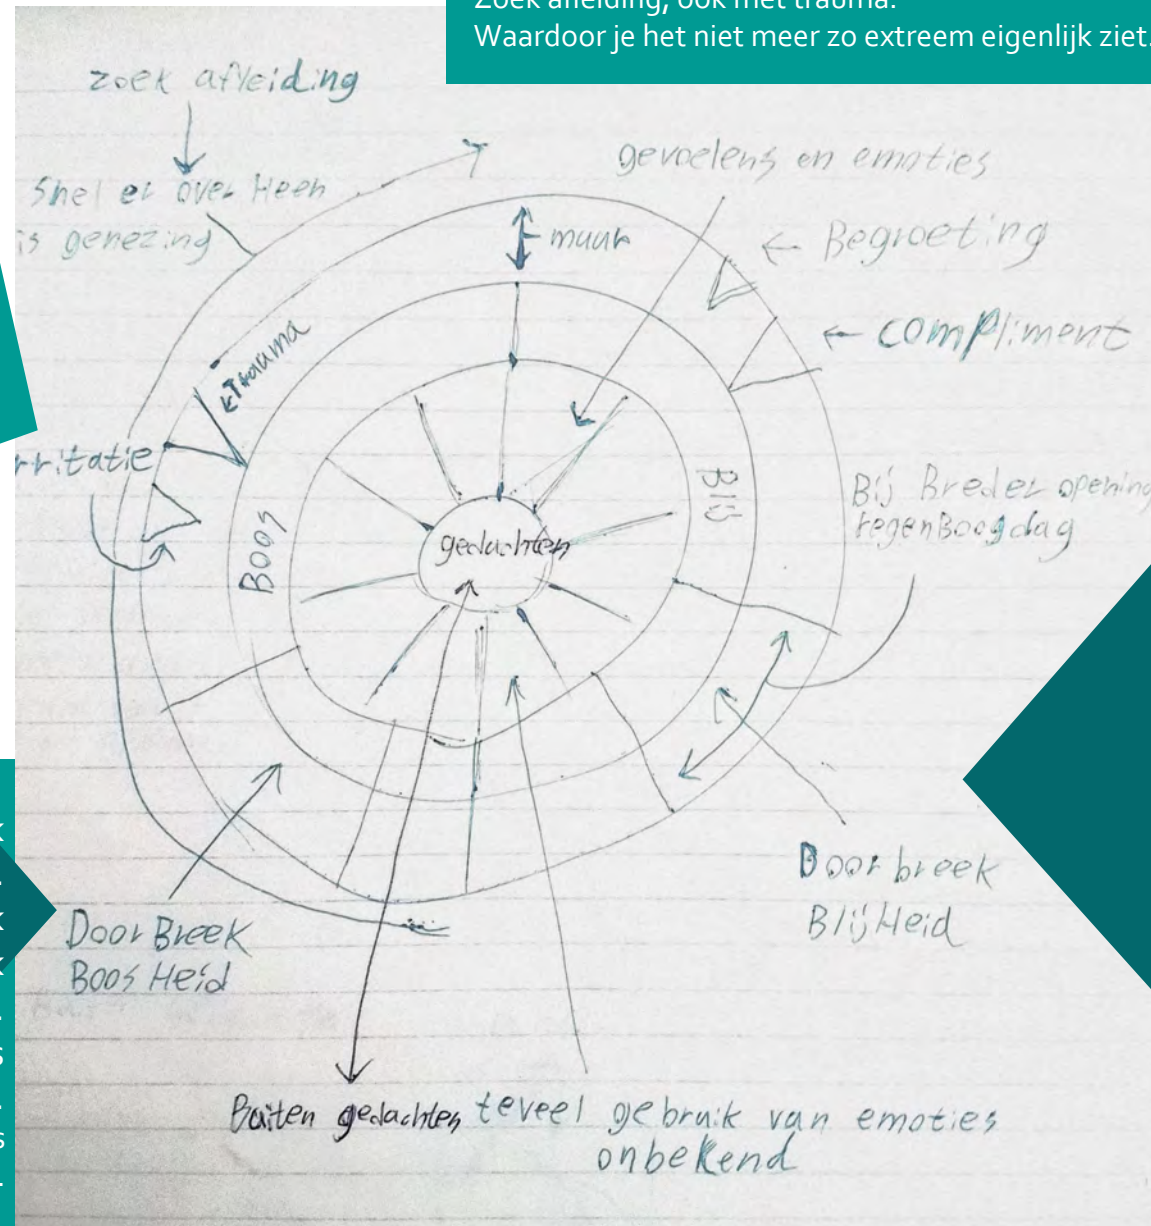 Zoek afleiding, ook met trauma.
Waardoor je het niet meer zo extreem eigenlijk ziet.
zoek afleiding
snel er over Heen
is genezing
gevoelens en emoties
muur
← Begroeting
← compliment
Trauma
rritatie
Boos
Blij
gedachten
Bij Breder opening
regenBoogdag
Door breek
BlijHeid
Door Breek
Boos Heid
Buiten gedachten
teveel gebruik van emoties
onbekend
k
k
k
s
s